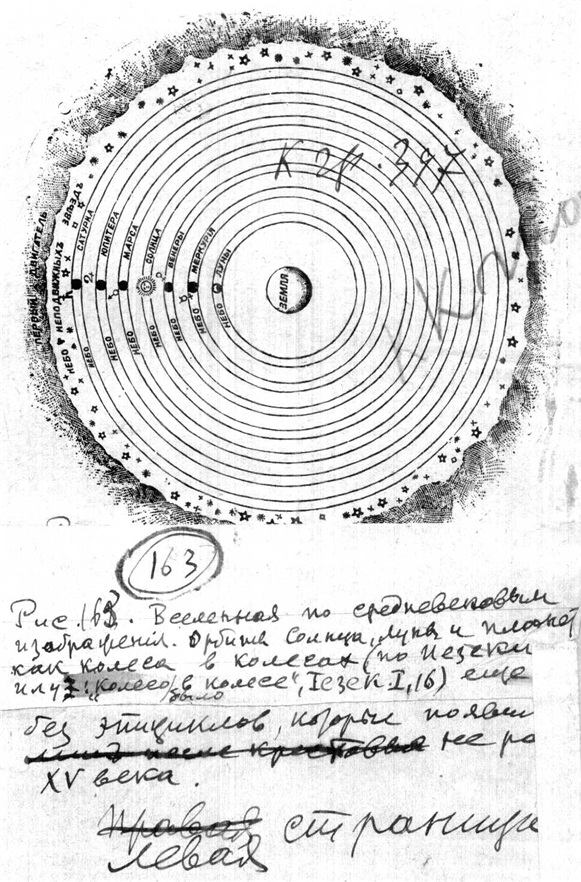 К гр. 397
ПЕРВЫЙ ДВИГАТЕЛЬ
НЕБО НЕПОДВИЖНЫХЪ ЗВѢЗДЪ
НЕБО САТУРНА
НЕБО ЮПИТЕРА
НЕБО МАРСА
НЕБО СОЛНЦА
НЕБО ВЕНЕРЫ
НЕБО МЕРКУРІЯ
НЕБО ЛУНЫ
ЗЕМЛЯ
163
Рис. 163. Вселенная по средневековым
изображенiя. Орбиты Солнца, Луны и планет
как колеса в колесах (по Иезеки
илу: "колесо было в колесе", Iезек I, 16) еще
без эпициклов, которые появи
не ра
XV века.
правая страница
левая